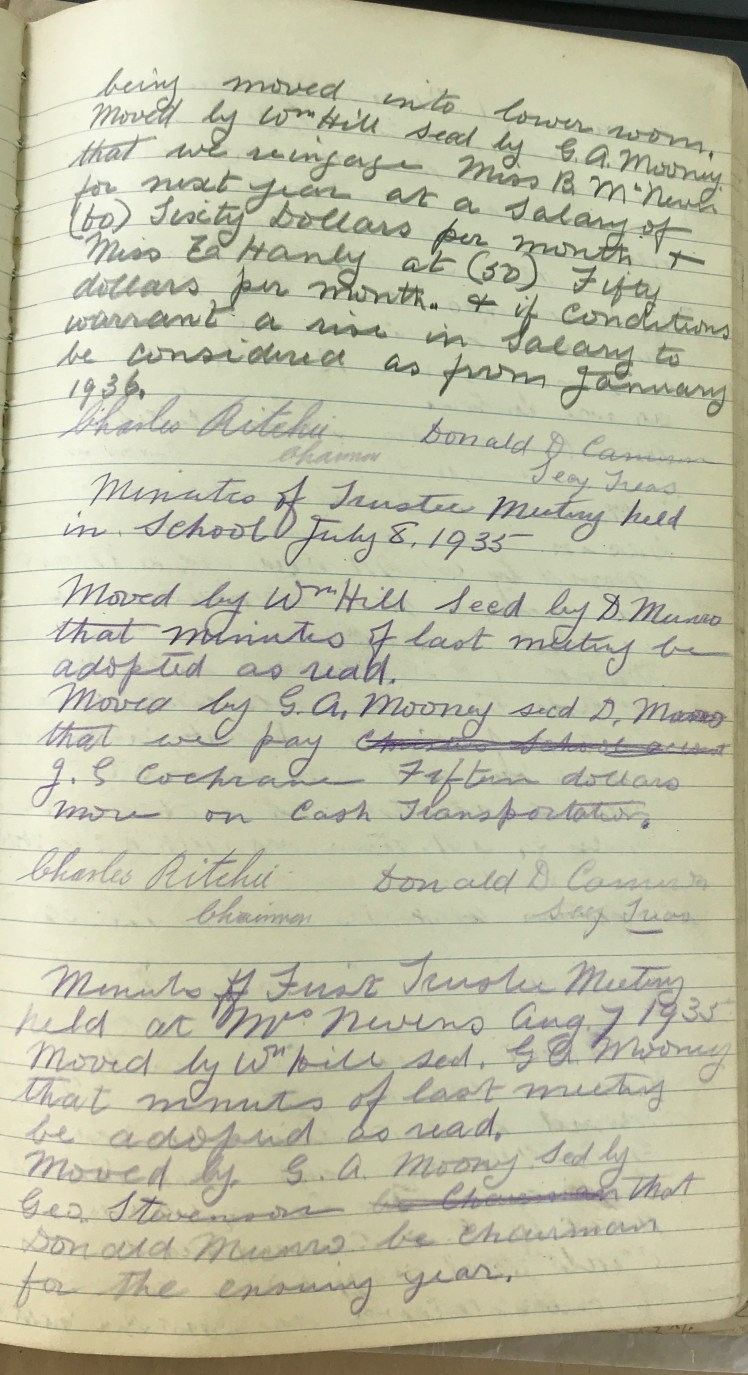 being moved into lower room.
Moved by Wm Hill secd by G. A. Mooney
that we reingage Miss B. Mc
for next year at a Salary of
(60) Sixity Dollars per month +
Miss Ed Hanly at (50) Fifty
dollars per month. + if Conditions
warrant a rise in Salary to
be considered as from January
1936.
Charles Ritchie Donald D Cameron
Chairman Secy Treas
Minutes of Trustee Meeting held
in School July 8, 1935
Moved by Wm Hill Secd by D. Munro
that minutes of last meeting be
adopted as read.
Moved by G. A. Mooney secd D. Munro
that we pay
J. S Cochrane Fifteen dollars
more on Cash Transportation.
Charles Ritchie Donald D Cameron
Chairman Secy Treas
Minuts of First Trustee Meeting
held at Mrs Nevens Aug 7 1935
Moved by Wm Hill sed. G A Mooney
that minuts of last meeting
be adopted as read.
Moved by. G. A. Moony Sed by
Geo. Stevenson be Chairman that
Donald Munro be chairman
for the ensuing year.